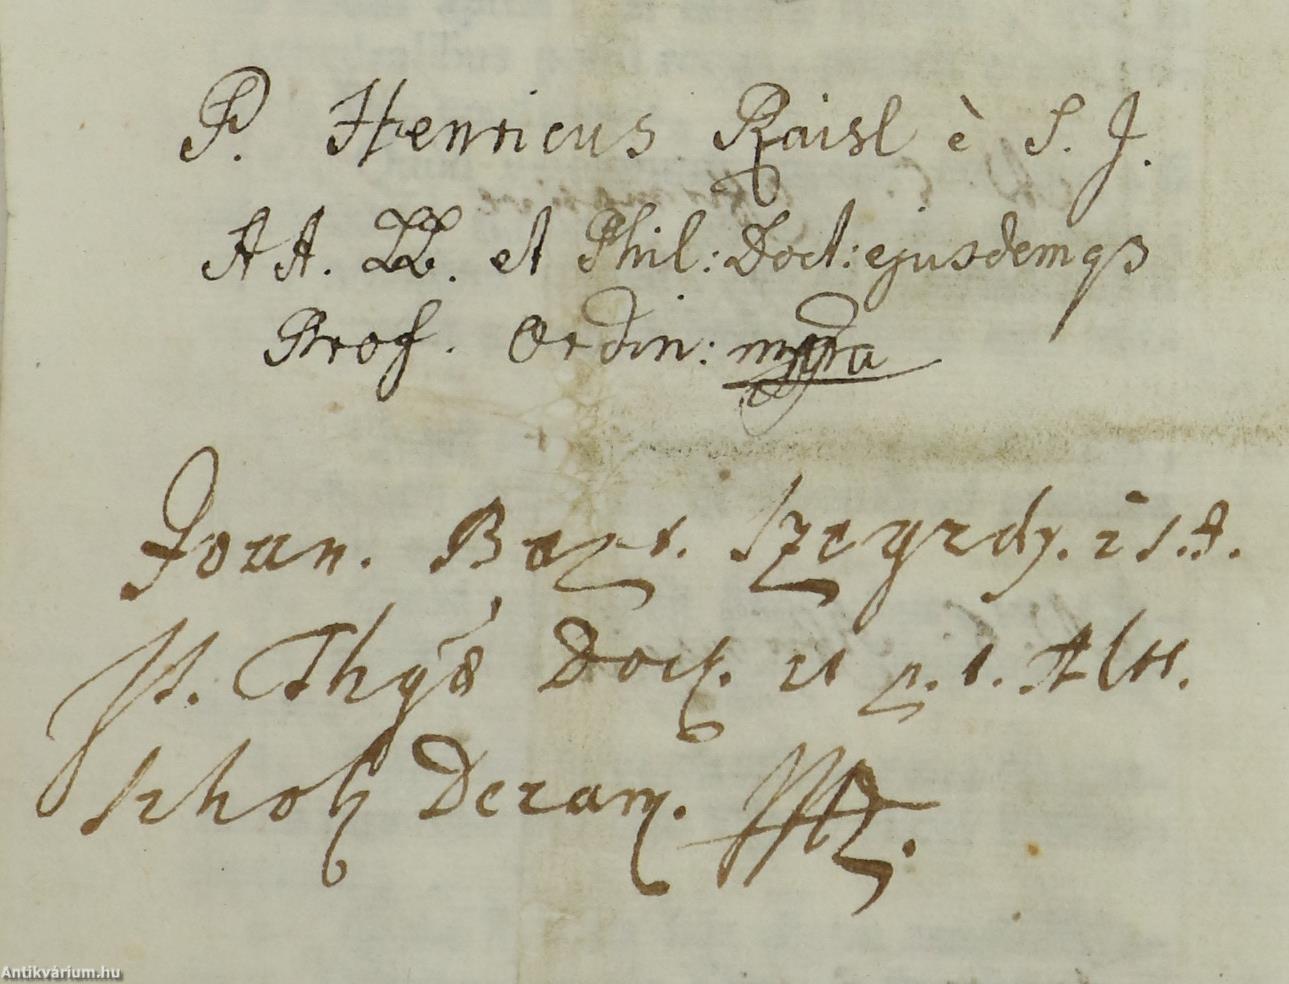 P. Henricus Raisl è S. J.
AA. LL. et Phil: Doct: ejusdemqз
Prof. Ordin: mpria
Joan. Bapt. Szegedy. è S. J.
SS. Thgiæ Doct. et p. t. Alt.
Schol. Decan. mp.
Antikvárium.hu